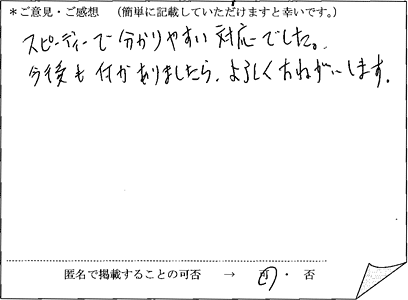 *ご意見・ご感想　(簡単に記載していただけますと幸いです。)
スピーディーで分かりやすい対応でした。
今後も何かありましたら、よろしくおねがいします。
匿名で掲載することの可否　→　可・否